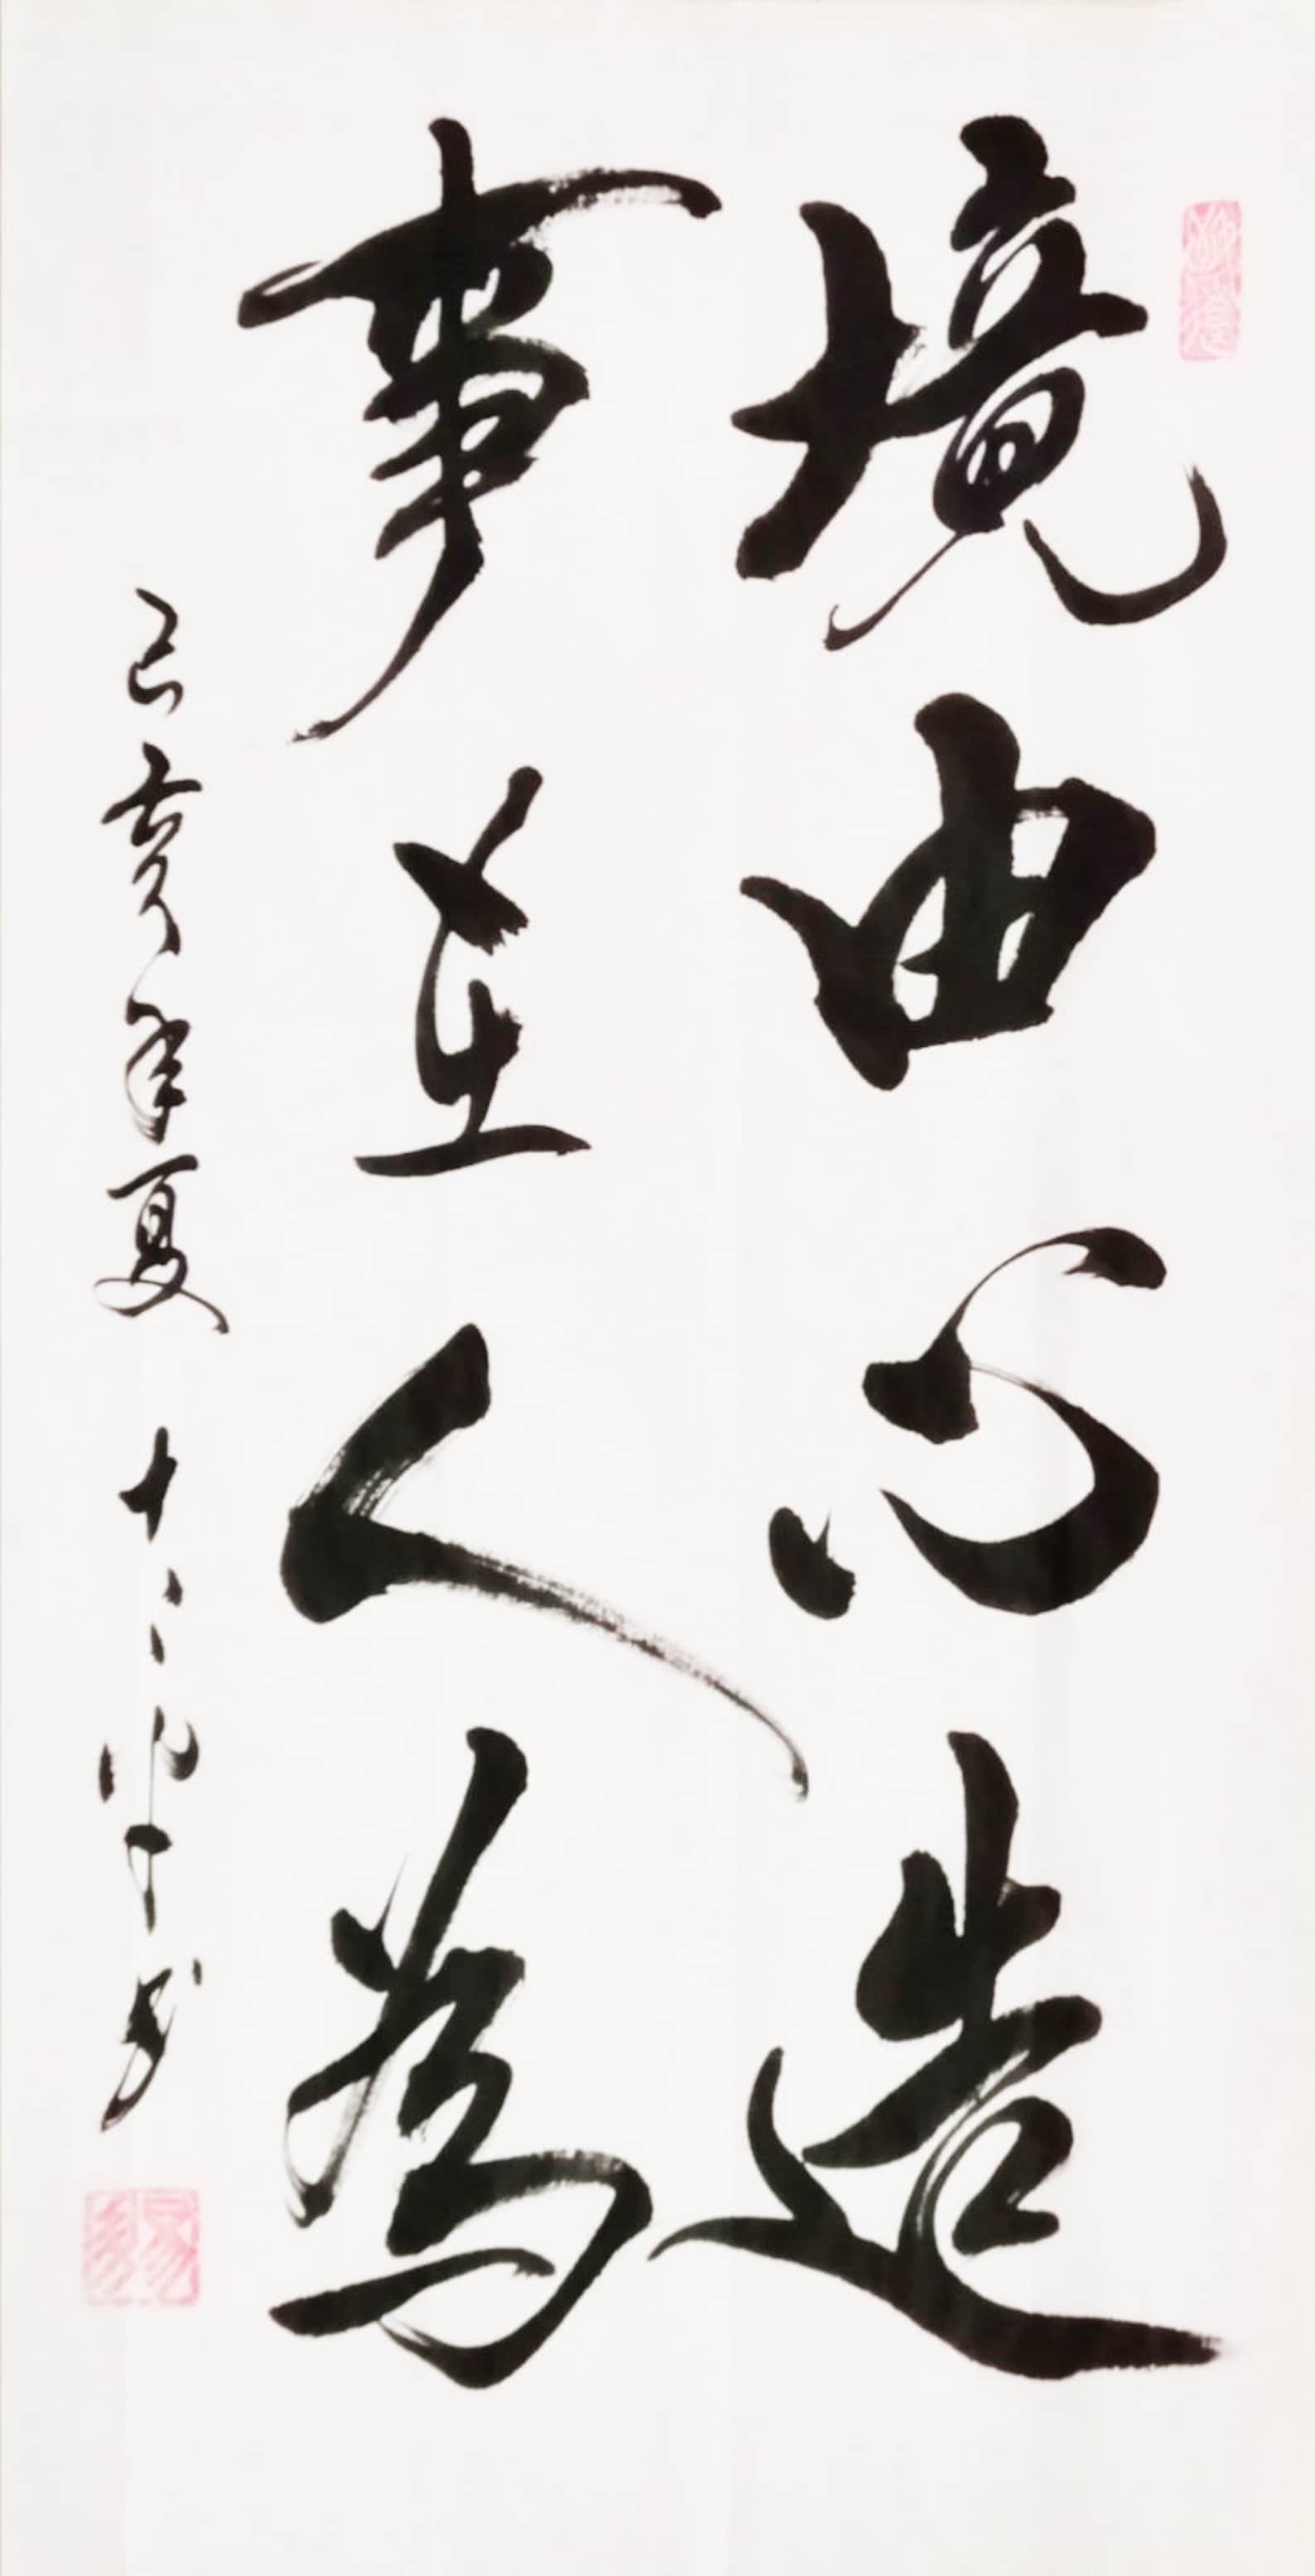 境由心造
事在人為
己亥年夏